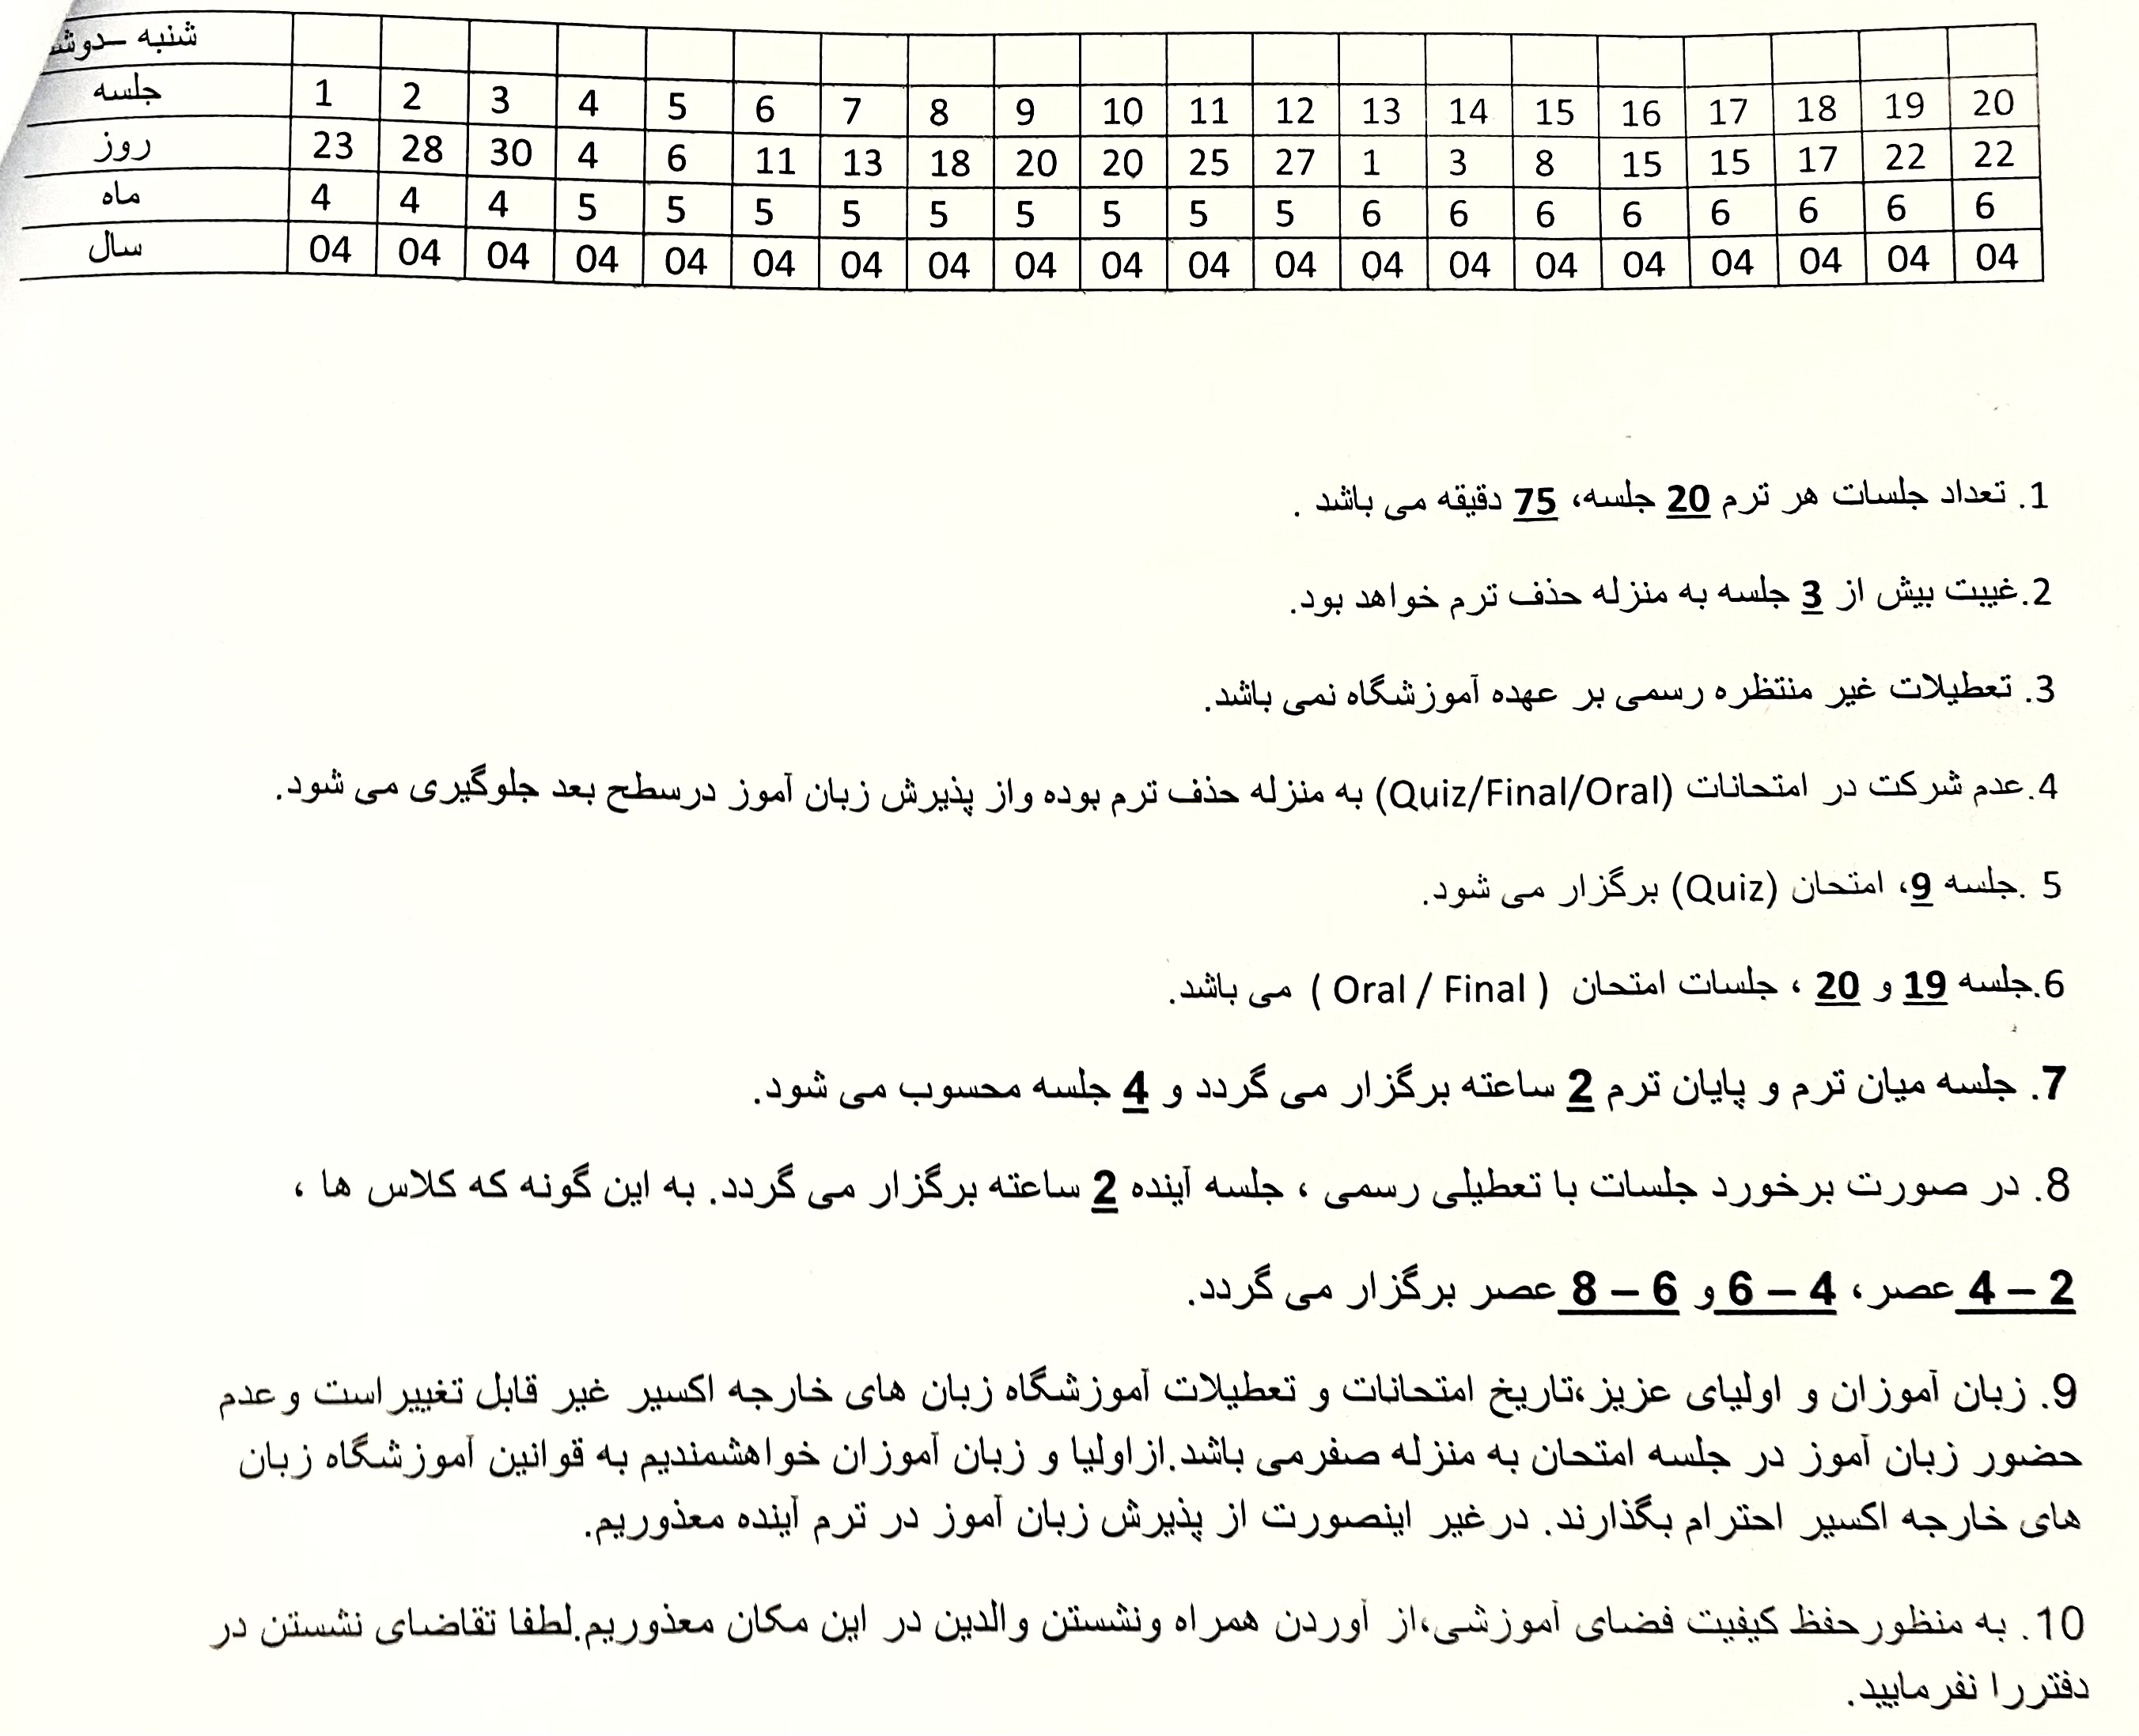 شنبه –دوش
جلسه 1 2 3 4 5 6 7 8 9 10 11 12 13 14 15 16 17 18 19 20
روز 23 28 30 4 6 11 13 18 20 20 25 27 1 3 8 15 15 17 22 22
ماه 4 4 4 5 5 5 5 5 5 5 5 5 6 6 6 6 6 6 6 6
سال 04 04 04 04 04 04 04 04 04 04 04 04 04 04 04 04 04 04 04 04
1. تعداد جلسات هر ترم 20 جلسه، 75 دقیقه می باشد .
2.غیبت بیش از 3 جلسه به منزله حذف ترم خواهد بود.
3. تعطیلات غیر منتظره رسمی بر عهده آموزشگاه نمی باشد.
4.عدم شرکت در امتحانات (Quiz/Final/Oral) به منزله حذف ترم بوده واز پذیرش زبان آموز درسطح بعد جلوگیری می شود.
5 .جلسه 9، امتحان (Quiz) برگزار می شود.
6.جلسه 19 و 20 ، جلسات امتحان ( Oral / Final ) می باشد.
7. جلسه میان ترم و پایان ترم 2 ساعته برگزار می گردد و 4 جلسه محسوب می شود.
8. در صورت برخورد جلسات با تعطیلی رسمی ، جلسه آینده 2 ساعته برگزار می گردد. به این گونه که کلاس ها ،
2 – 4 عصر، 4 – 6 و 6 – 8 عصر برگزار می گردد.
9. زبان آموزان و اولیای عزیز،تاریخ امتحانات و تعطیلات آموزشگاه زبان های خارجه اکسیر غیر قابل تغییراست و عدم
حضور زبان آموز در جلسه امتحان به منزله صفرمی باشد.ازاولیا و زبان آموزان خواهشمندیم به قوانین آموزشگاه زبان
های خارجه اکسیر احترام بگذارند. درغیر اینصورت از پذیرش زبان آموز در ترم آینده معذوریم.
10. به منظورحفظ کیفیت فضای آموزشی،از آوردن همراه ونشستن والدین در این مکان معذوریم.لطفا تقاضای نشستن در
دفتررا نفرمایید.